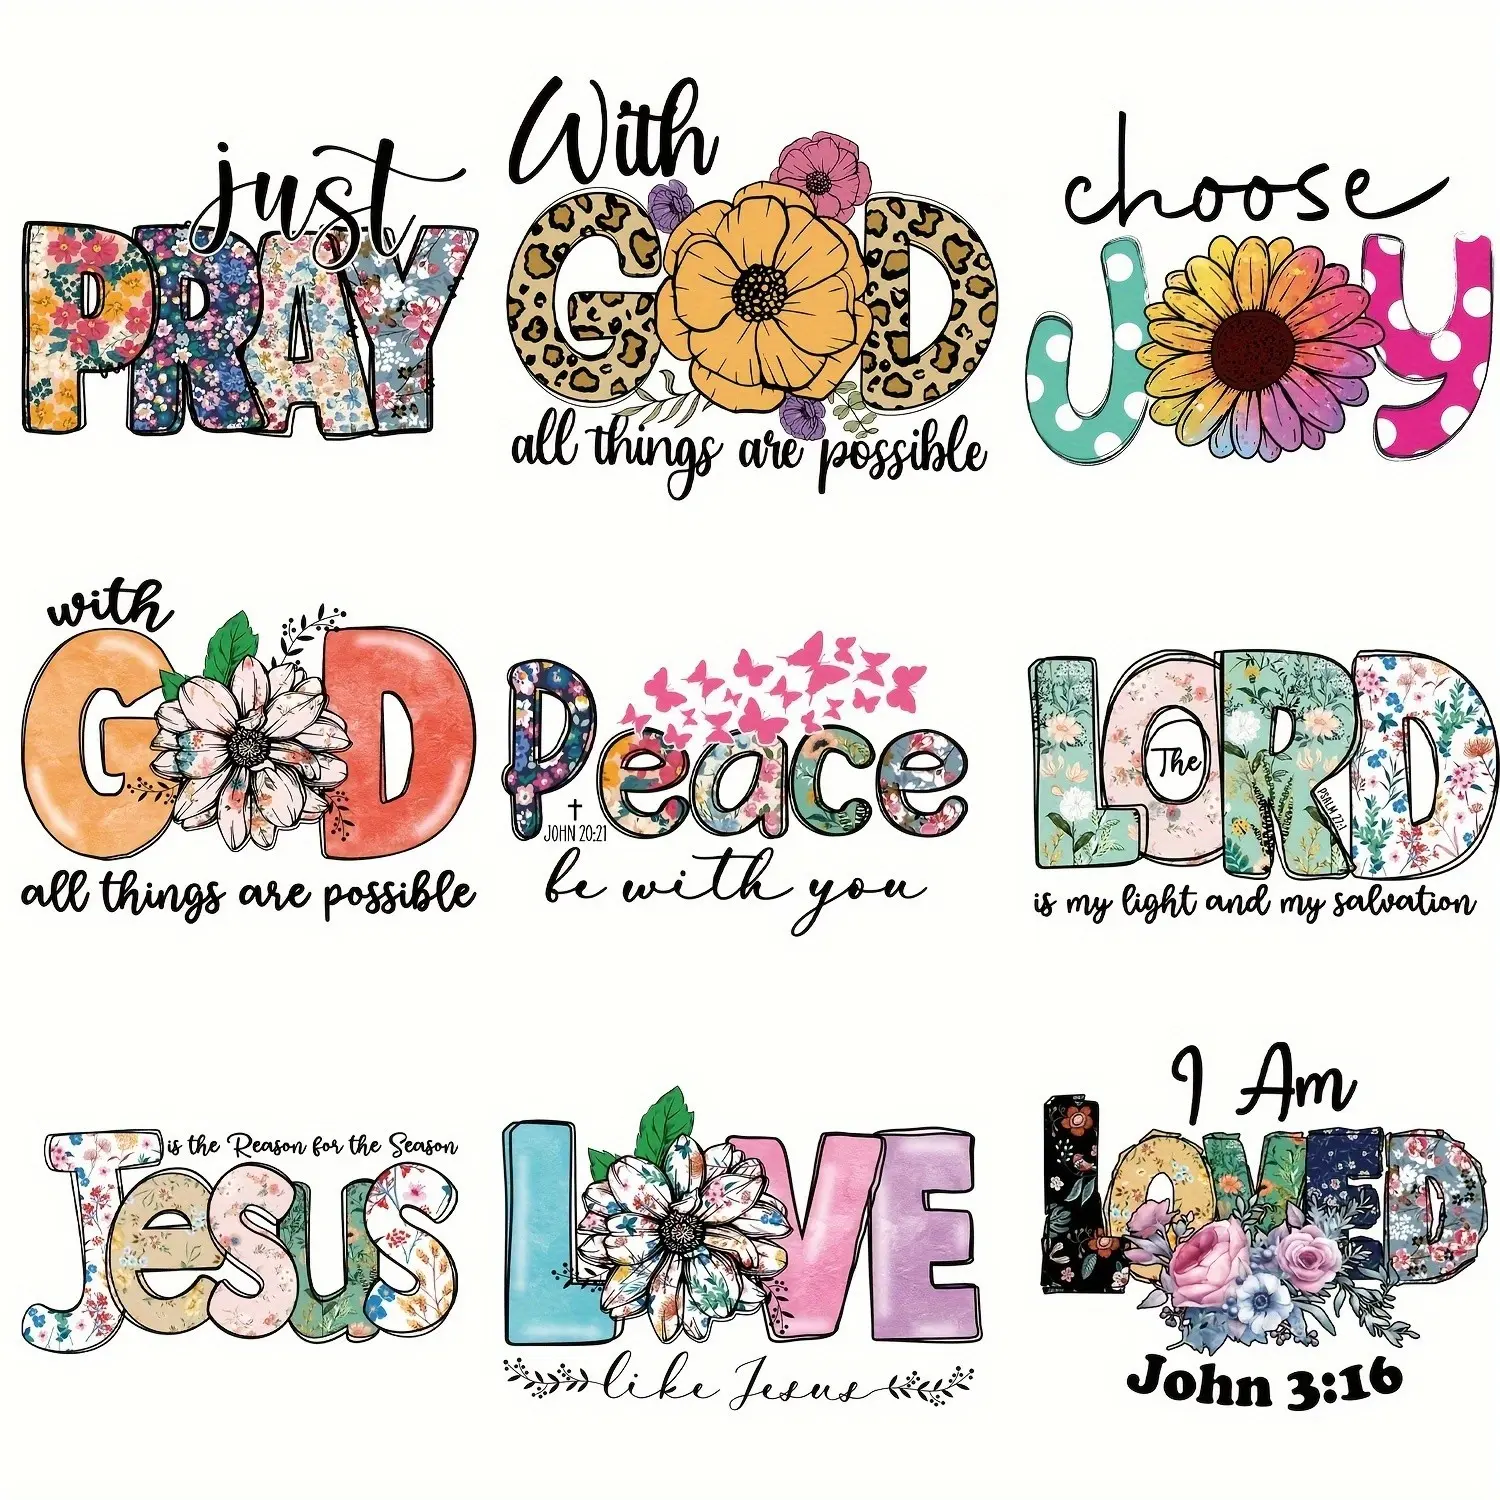 just
PRAY
With
GOD
all things are possible
choose
JOY
with
GOD
all things are possible
Peace
JOHN 20:21
be with you
The
LORD
PSALM 27:1
is my light and my salvation
Jesus
is the Reason for the Season
LOVE
like Jesus
I Am
LOVED
John 3:16